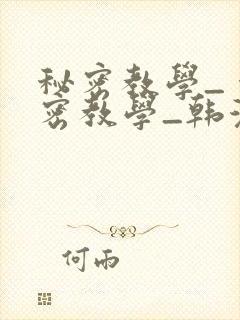 秘密教學_
密教學_韩漫
何雨